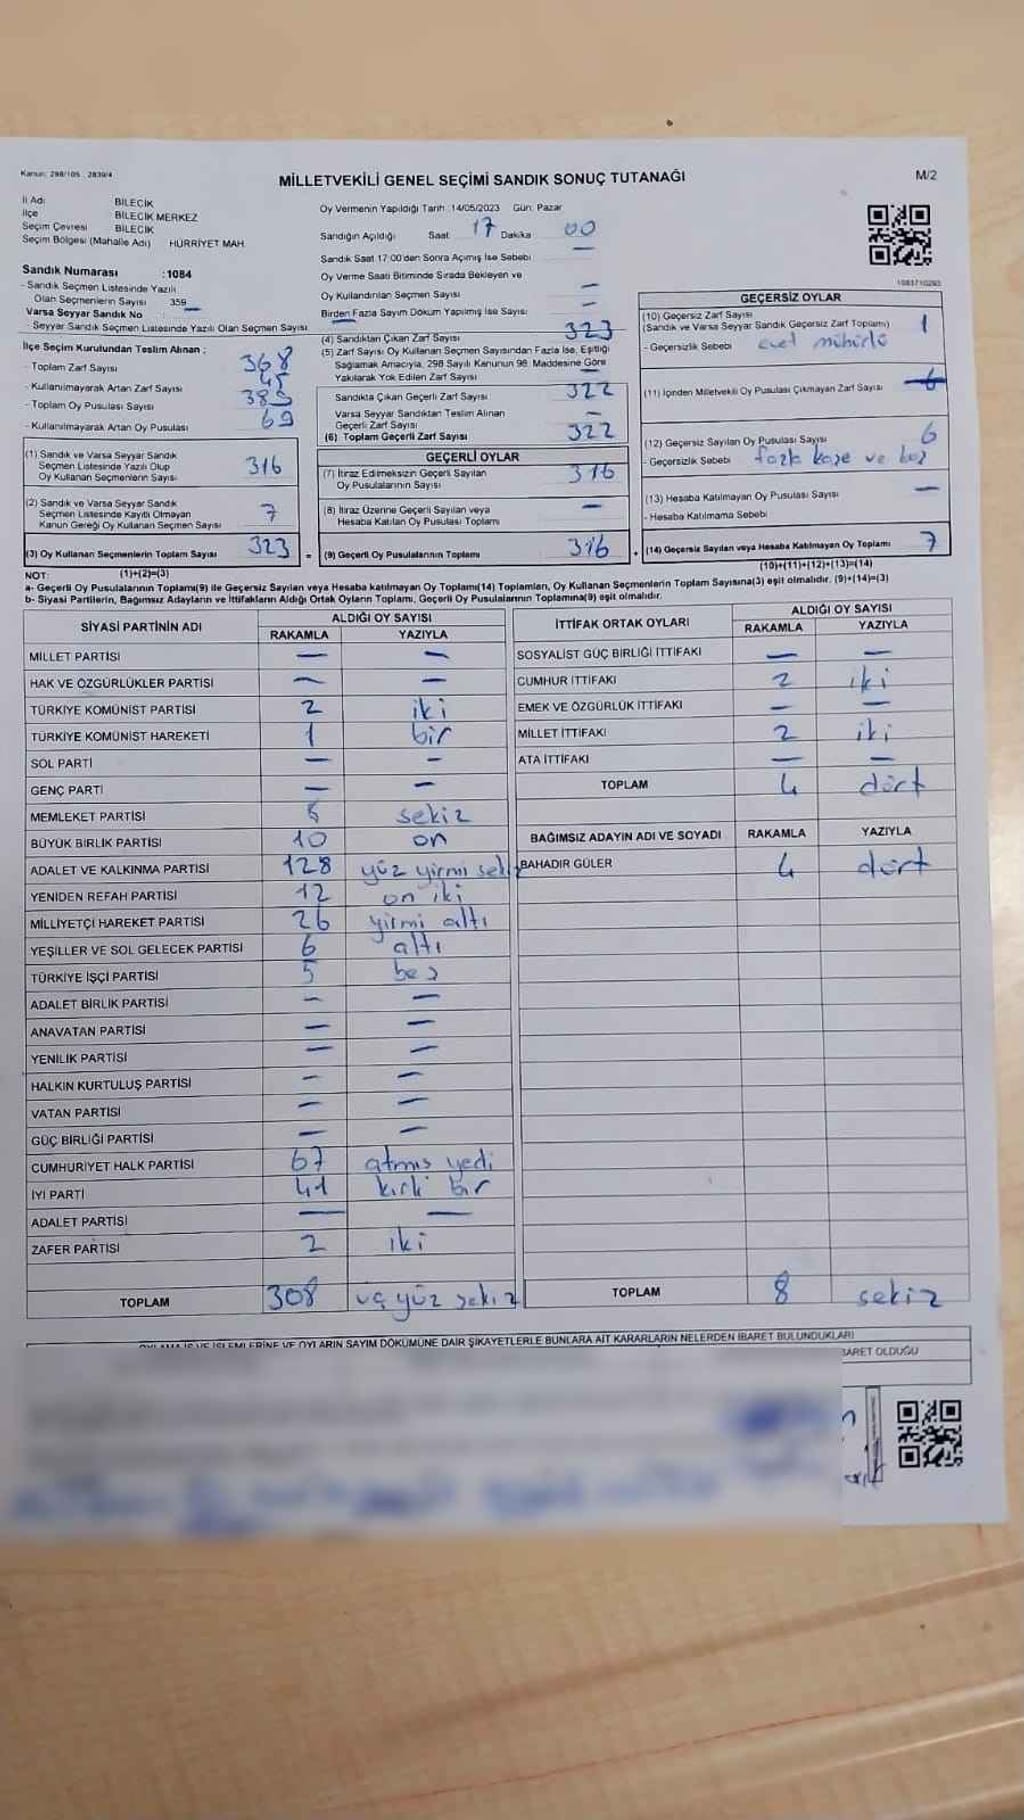 Kanun: 298/105 , 2839/4
MİLLETVEKİLİ GENEL SEÇİMİ SANDIK SONUÇ TUTANAĞI
M/2
İl Adı BİLECİK
İlçe BİLECİK MERKEZ
Seçim Çevresi BİLECİK
Seçim Bölgesi (Mahalle Adı) HÜRRİYET MAH.
Sandık Numarası : 1084
- Sandık Seçmen Listesinde Yazılı
Olan Seçmenlerin Sayısı 359
Varsa Seyyar Sandık No —
- Seyyar Sandık Seçmen Listesinde Yazılı Olan Seçmen Sayısı
İlçe Seçim Kurulundan Teslim Alınan ;
- Toplam Zarf Sayısı 368
- Kullanılmayarak Artan Zarf Sayısı 45
- Toplam Oy Pusulası Sayısı 385
- Kullanılmayarak Artan Oy Pusulası 69
(1) Sandık ve Varsa Seyyar Sandık
Seçmen Listesinde Yazılı Olup
Oy Kullanan Seçmenlerin Sayısı 316
(2) Sandık ve Varsa Seyyar Sandık
Seçmen Listesinde Kayıtlı Olmayan
Kanun Gereği Oy Kullanan Seçmen Sayısı 7
(3) Oy Kullanan Seçmenlerin Toplam Sayısı 323 =
(1)+(2)=(3)
Oy Vermenin Yapıldığı Tarih :14/05/2023 Gün: Pazar
Sandığın Açıldığı Saat 17 Dakika 00
Sandık Saat 17:00'den Sonra Açımış İse Sebebi —
Oy Verme Saati Bitiminde Sırada Bekleyen ve
Oy Kullandırılan Seçmen Sayısı —
Birden Fazla Sayım Döküm Yapılmış İse Sayısı —
(4) Sandıktan Çıkan Zarf Sayısı 323
(5) Zarf Sayısı Oy Kullanan Seçmen Sayısından Fazla İse, Eşitliği
Sağlamak Amacıyla, 298 Sayılı Kanunun 98. Maddesine Göre
Yakılarak Yok Edilen Zarf Sayısı —
Sandıkta Çıkan Geçerli Zarf Sayısı 322
Varsa Seyyar Sandıktan Teslim Alınan
Geçerli Zarf Sayısı —
(6) Toplam Geçerli Zarf Sayısı 322
GEÇERLİ OYLAR
(7) İtiraz Edilmeksizin Geçerli Sayılan
Oy Pusulalarının Sayısı 316
(8) İtiraz Üzerine Geçerli Sayılan veya
Hesaba Katılan Oy Pusulası Toplamı —
(9) Geçerli Oy Pusulalarının Toplamı 316 +
GEÇERSİZ OYLAR
(10) Geçersiz Zarf Sayısı
(Sandık ve Varsa Seyyar Sandık Geçersiz Zarf Toplamı) 1
- Geçersizlik Sebebi evet mühürlü
(11) İçinden Milletvekili Oy Pusulası Çıkmayan Zarf Sayısı
(12) Geçersiz Sayılan Oy Pusulası Sayısı 6
- Geçersizlik Sebebi fazla kaşe ve boş
(13) Hesaba Katılmayan Oy Pusulası Sayısı —
- Hesaba Katılmama Sebebi
(14) Geçersiz Sayılan veya Hesaba Katılmayan Oy Toplamı 7
(10)+(11)+(12)+(13)=(14)
NOT:
a- Geçerli Oy Pusulalarının Toplamı(9) ile Geçersiz Sayılan veya Hesaba katılmayan Oy Toplamı(14) Toplamları, Oy Kullanan Seçmenlerin Toplam Sayısına(3) eşit olmalıdır. (9)+(14)=(3)
b- Siyasi Partilerin, Bağımsız Adayların ve İttifakların Aldığı Ortak Oyların Toplamı, Geçerli Oy Pusulalarının Toplamına(9) eşit olmalıdır.
SİYASİ PARTİNİN ADI ALDIĞI OY SAYISI
RAKAMLA YAZIYLA
MİLLET PARTİSİ — —
HAK VE ÖZGÜRLÜKLER PARTİSİ — —
TÜRKİYE KOMÜNİST PARTİSİ 2 iki
TÜRKİYE KOMÜNİST HAREKETİ 1 bir
SOL PARTİ — —
GENÇ PARTİ — —
MEMLEKET PARTİSİ 8 sekiz
BÜYÜK BİRLİK PARTİSİ 10 on
ADALET VE KALKINMA PARTİSİ 128 yüz yirmi
YENİDEN REFAH PARTİSİ 12 on iki
MİLLİYETÇİ HAREKET PARTİSİ 26 yirmi altı
YEŞİLLER VE SOL GELECEK PARTİSİ 6 altı
TÜRKİYE İŞÇİ PARTİSİ 5 beş
ADALET BİRLİK PARTİSİ — —
ANAVATAN PARTİSİ — —
YENİLİK PARTİSİ — —
HALKIN KURTULUŞ PARTİSİ — —
VATAN PARTİSİ — —
GÜÇ BİRLİĞİ PARTİSİ — —
CUMHURİYET HALK PARTİSİ 67 atmıs yedi
İYİ PARTİ 41 bir
ADALET PARTİSİ — —
ZAFER PARTİSİ 2 iki
TOPLAM 308 üç yüz sekiz
İTTİFAK ORTAK OYLARI ALDIĞI OY SAYISI
RAKAMLA YAZIYLA
SOSYALİST GÜÇ BİRLİĞİ İTTİFAKI — —
CUMHUR İTTİFAKI 2 iki
EMEK VE ÖZGÜRLÜK İTTİFAKI — —
MİLLET İTTİFAKI 2 iki
ATA İTTİFAKI — —
TOPLAM 4 dört
BAĞIMSIZ ADAYIN ADI VE SOYADI RAKAMLA YAZIYLA
BAHADIR GÜLER 4 dört
TOPLAM 8 sekiz
İŞLEMLERİNE VE OYLARIN SAYIM DÖKÜMÜNE DAİR ŞİKAYETLERLE BUNLARA AİT KARARLARIN NELERDEN İBARET BULUNDUKLARI
İBARET OLDUĞU